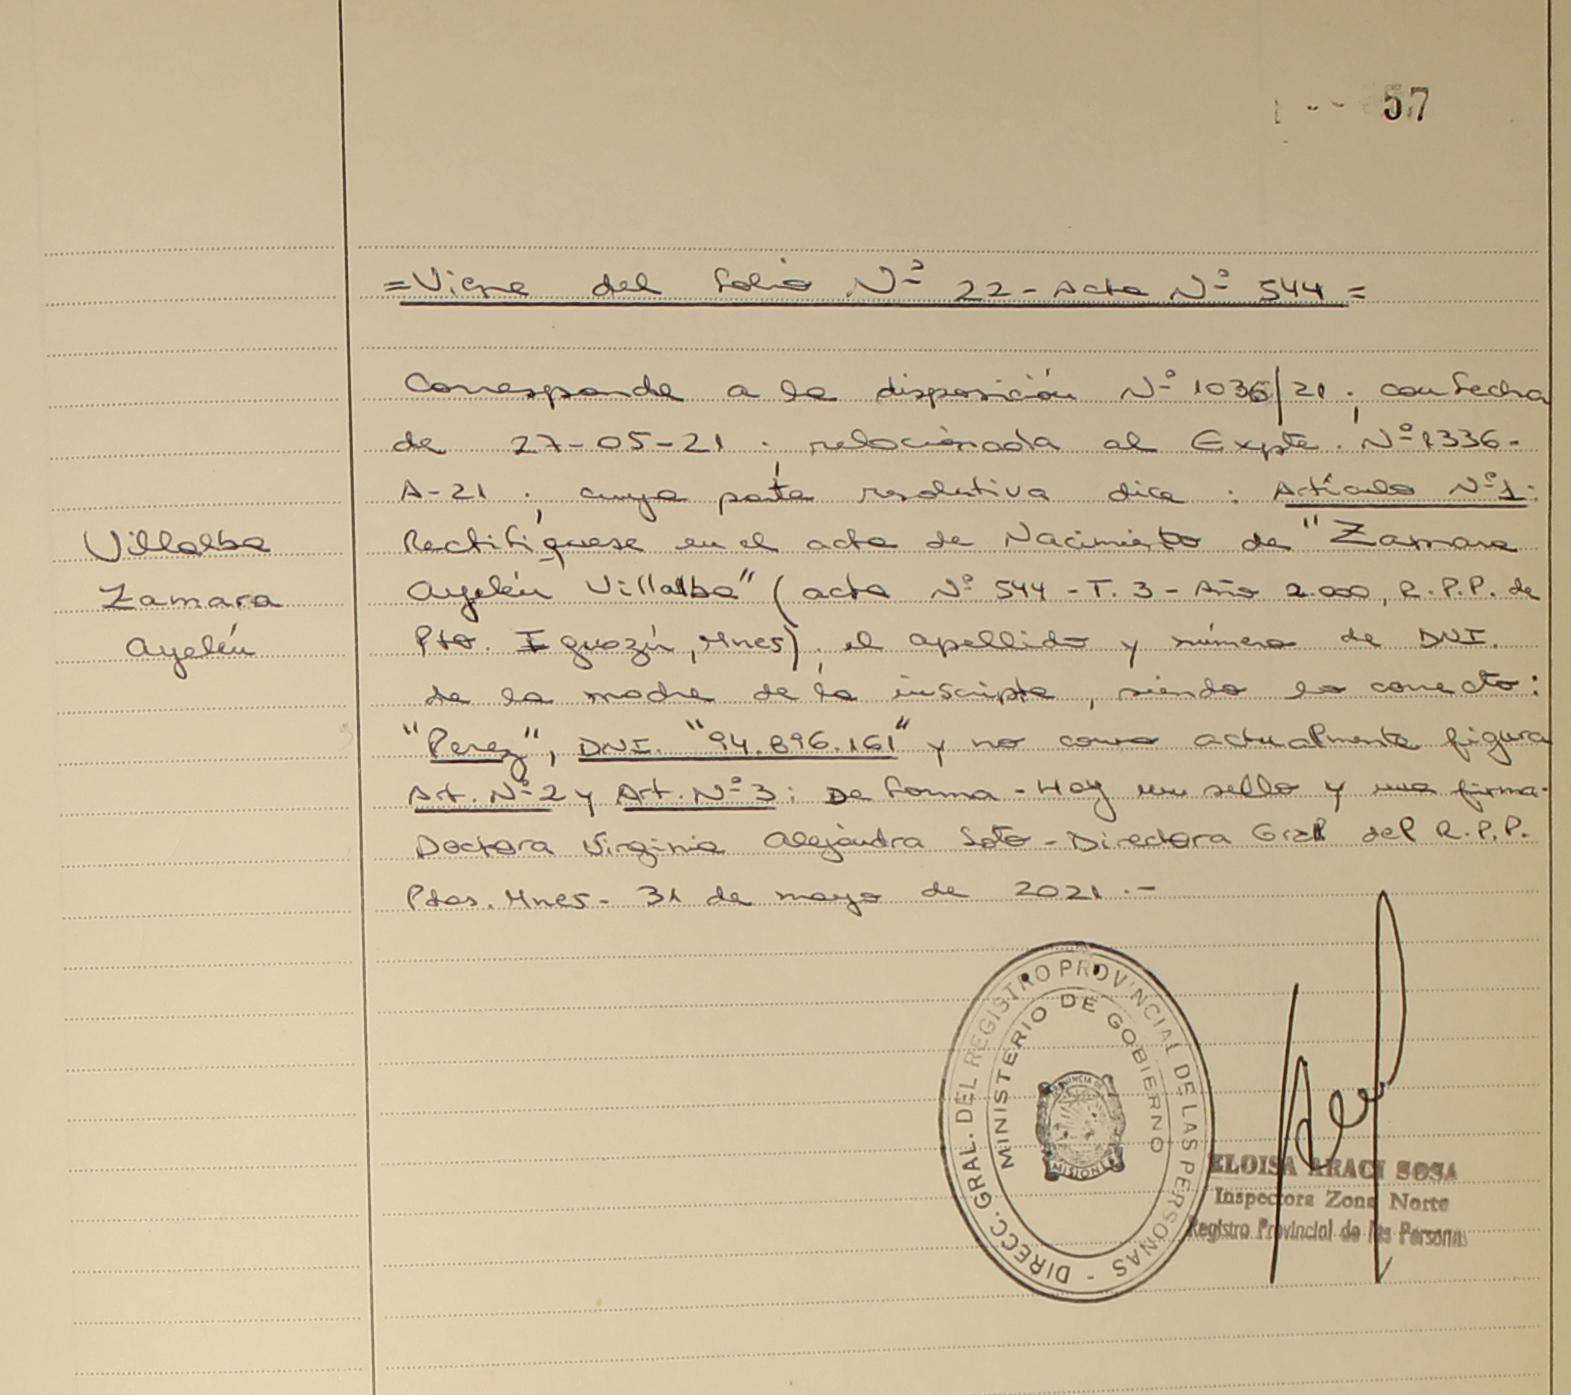 57
=Viene del folio Nº 22-Acta Nº 544=
Corresponde a la disposición Nº 1036/21, con fecha
de 27-05-21, relacionada al Expte. Nº 1336-
A-21, cuya parte resolutiva dice: Artículo Nº1:
Rectifíquese en el acta de Nacimiento de "Zamara
Ayelén Villalba" (acta Nº 544 - T. 3 - Año 2.000, R.P.P. de
Pto. Iguazú, Mnes), el apellido y número de DNI.
de la madre de la inscripta, siendo lo correcto:
"Perez", DNI. "94.896.161" y no como actualmente figura
Art. Nº 2 y Art. Nº 3: De forma - Hay un sello y una firma-
Doctora Virginia Alejandra Soto - Directora Gral del R.P.P.
Pdas. Mnes - 31 de mayo de 2021.-
Villalba
Zamara
Ayelén
DIRECC. GRAL. DEL REGISTRO PROVINCIAL DE LAS PERSONAS -
MINISTERIO DE GOBIERNO
PROVINCIA DE
MISIONES
ELOISA ARACI SOSA
Inspectora Zona Norte
Registro Provincial de las Personas